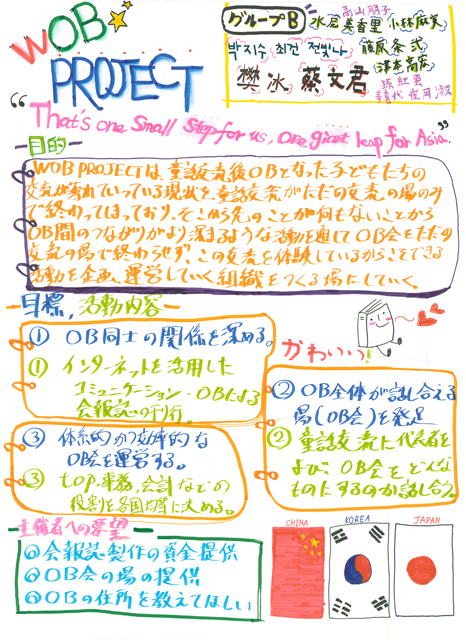 WOB PROJECT
グループB
水尾美香里 高山朋子 小林麻美
박지수 최건 전빛나 藤原条弐
樊冰 蔡文君 津本高広
張紅更
喜代 夜月 淑
"That's one small step for us, one giant leap for Asia."
-目的-
WOB PROJECTは、童話交流後OBとなった子どもたちの
交流が薄れていっている現状を、童話交流がただの交流の場のみ
で終わってしまっており、そこから先のことが何もないことから
OB間のつながりがより深まるような活動を通してOB会をただの
交流の場で終わらせず、この交流を体験しているからこそできる
活動を企画、運営していく組織をつくる場にしていく。
目標、活動内容
① OB同士の関係を深める。
① インターネットを活用した
コミュニケーション・OBによる
会報誌の刊行。
かわいい!
② OB全体が話し合える
場(OB会)を発足
② 童話交流に代表者を
よび、OB会をどんな
ものにするのか話し合う。
③ 体系的かつ効率的な
OB会を運営する。
③ top、事務、会計などの
役割を各国均等に決める。
主催者への要望
◎会報誌製作の資金提供
◎OB会の場の提供
◎OBの住所を教えてほしい
CHINA
KOREA
JAPAN